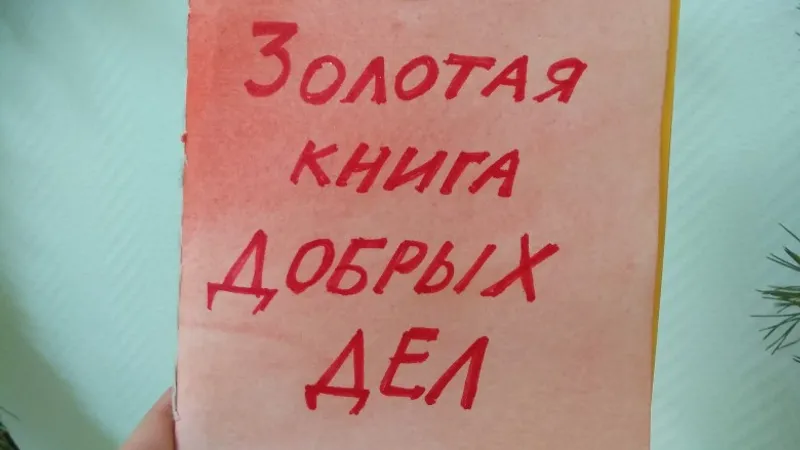 Золотая
книга
добрых
дел